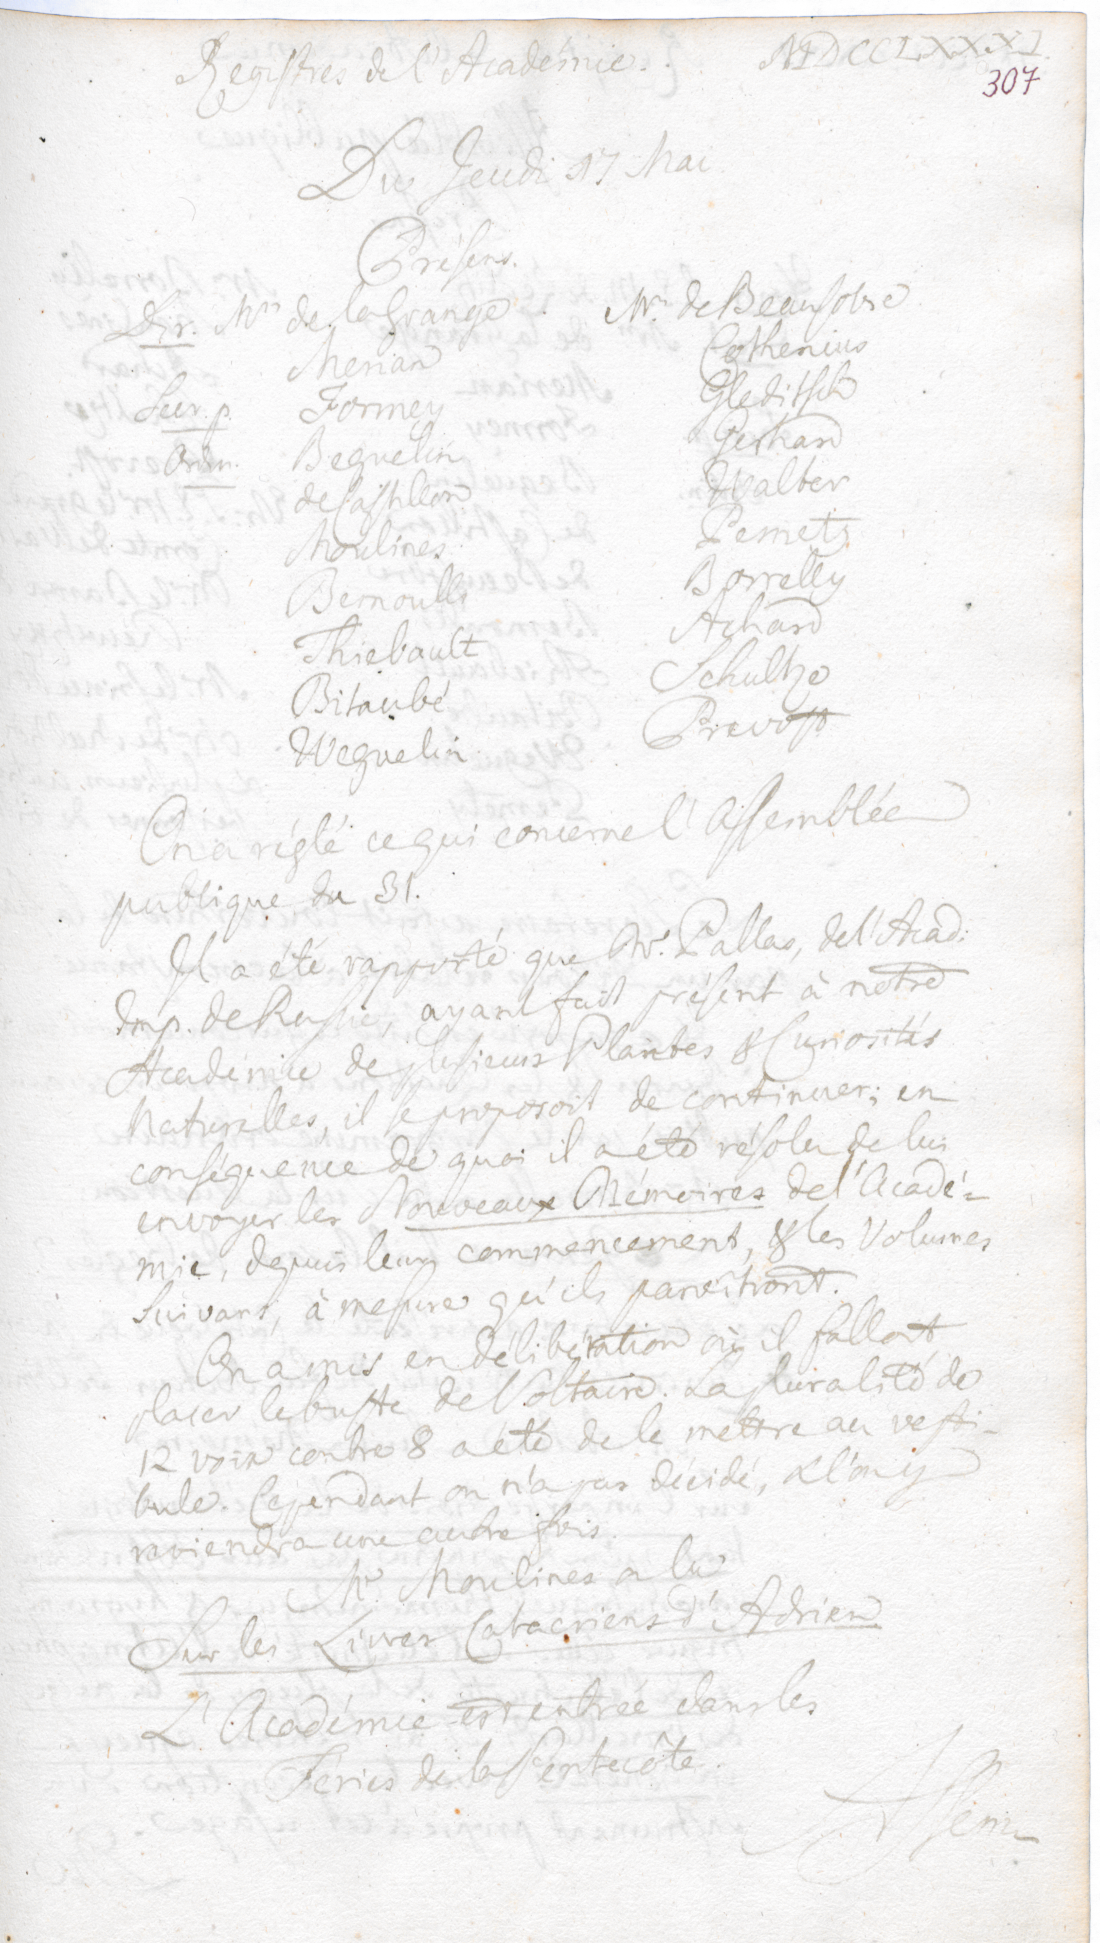 Registres de l'Académie. MDCCLXXXI
307
Du Jeudi 17 Mai
Présens.
Dir. Mrs de la Grange Mrs de Beausobre
Merian Cothenius
Secr. p. Formey Gleditsch
Ordin. Beguelin Gerhard
de Castillon Walter
Moulines Pernety
Bernoulli Borrelly
Thiebault Achard
Bitaubé Schultze
Weguelin Prevost
On a réglé ce qui concerne l'Assemblée
publique du 31.
Il a été rapporté que Mr. Pallas, de l'Acad.
Imp. de Russie, ayant fait présent à notre
Académie de plusieurs Plantes & Curiosités
Naturelles, il se proposoit de continuer; en
conséquence de quoi il a été résolu de lui
envoyer les Nouveaux Mémoires de l'Acadé-
mie, depuis leur commencement, & les Volumes
suivans, à mesure qu'ils paroitront.
On a mis en délibération où il falloit
placer le buste de Voltaire. La pluralité de
12 voix contre 8 a été de le mettre au vesti-
bule. Cependant on n'a pas décidé, & l'on y
reviendra une autre fois.
Mr. Moulines a lu
Sur les Livres Catacriens d'Adrien
L'Académie est entrée dans les
Feries de la Pentecôte.